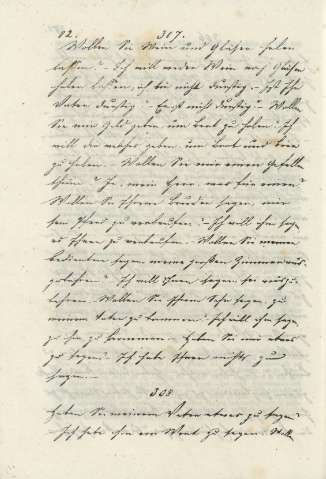 82. 307.
Wollen Sie Wein und Gläser holen
lassen? Ich will weder Wein noch Gläser
holen lassen, ich bin nicht durstig. Ist Ihr
Vater durstig? Er ist nicht durstig. Wollen
Sie mir Geld geben, um Brot zu holen? Ich
will Ihnen geben, um Brot und Bier
zu holen. Wollen Sie mir einen Gefallen
thun? Ja, mein Herr, was für einen?
Wollen Sie Ihrem Bruder sagen, mir
sein Pferd zu verkaufen? Ich will ihm sagen,
es Ihnen zu verkaufen. Wollen Sie meinen
Bedienten sagen, meine großen Zimmer aus-
zukehren? Ich will Ihnen sagen, sie auszu-
kehren. Wollen Sie Ihrem Sohn sagen, zu
meinem Vater zu kommen? Ich will ihm sagen,
zu ihm zu kommen. Haben Sie mir etwas
zu sagen? Ich habe Ihnen nichts zu
sagen.
308
Haben Sie meinem Vater etwas zu sagen?
Ich habe ihm ein Wort zu sagen. Woll